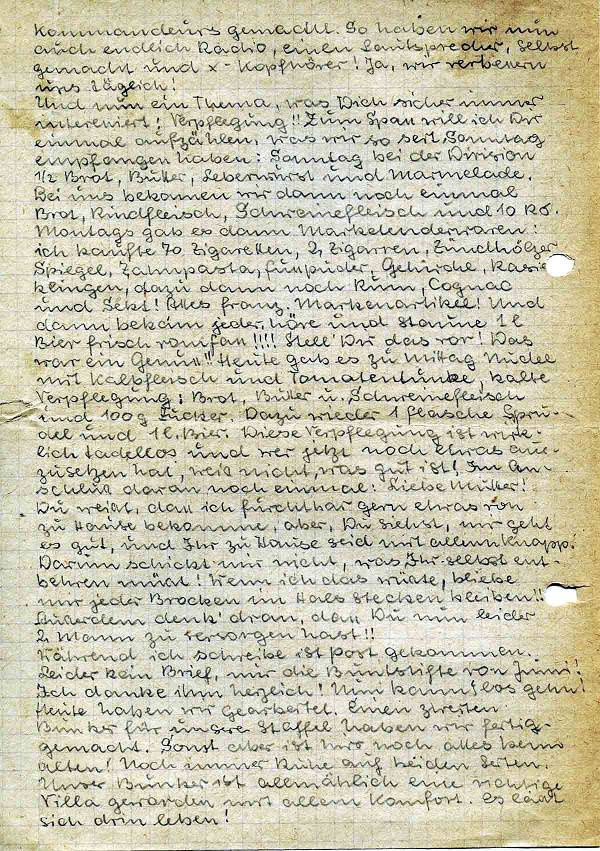 Kommandeurs gemacht. So haben wir nun
auch endlich Radio, einen Lautsprecher, selbst
gemacht und x-Kopfhörer! Ja, wir verbessern
uns täglich!
Und nun ein Thema, was Dich sicher immer
interessiert! Verpflegung!! Zum Spaß will ich Dir
einmal aufzählen, was wir so seit Sonntag
empfangen haben: Sonntag bei der Division
1/2 Brot, Butter, Leberwurst und Marmelade.
Bei uns bekamen wir dann noch einmal
Brot, Rindfleisch, Schweinefleisch und 10
Montags gab es dann Marketenderwaren:
ich kaufte 70 Zigaretten, 2 Zigarren, Zündhölzer
Spiegel, Zahnpasta, Fußpuder, Rasier
klingen, dazu dann noch Rum, Cognac
und Sekt! Alles franz. Markenartikel! Und
dann bekam jeder, höre und staune 1 l
Bier frisch vom Faß!!!! Stell' Dir das vor! Das
war ein Genuß!! Heute gab es zu Mittag Nudel
mit Kalbfleisch und Tomatentunke, kalte
Verpflegung: Brot, Butter u. Schweinefleisch
und 100g Zucker. Dazu wieder 1 Flasche Spru-
del und 1 l. Bier. Diese Verpflegung ist wirk-
lich tadellos und wer jetzt noch etwas aus-
zusetzen hat, weiß nicht, was gut ist! Im An-
schluß daran noch einmal: Liebe Mutter!
Du weißt, daß ich furchtbar gern etwas von
zu Hause bekomme, aber, Du siehst, mir geht
es gut, und Ihr zu Hause seid mit allem knapp!
Darum schickt mir nicht, was Ihr selbst ent-
behren müßt! Wenn ich das wüßte, bliebe
mir jeder Brocken im Hals stecken bleiben!!
Außerdem denk' dran, daß Du nun leider
2 Mann zu versorgen hast!!
Während ich schreibe ist Post gekommen.
Leider kein Brief, nur die Buntstifte von Juni!
Ich danke ihm herzlich! Nun kann's los gehn!
Heute haben wir gearbeitet. Einen zweiten
Bunker für unsere Staffel haben wir fertig-
gemacht. Sonst aber ist hier noch alles beim
alten! Noch immer Ruhe auf beiden Seiten.
Unser Bunker ist allmählich eine richtige
Villa geworden mit allem Komfort. Es läßt
sich drin leben!